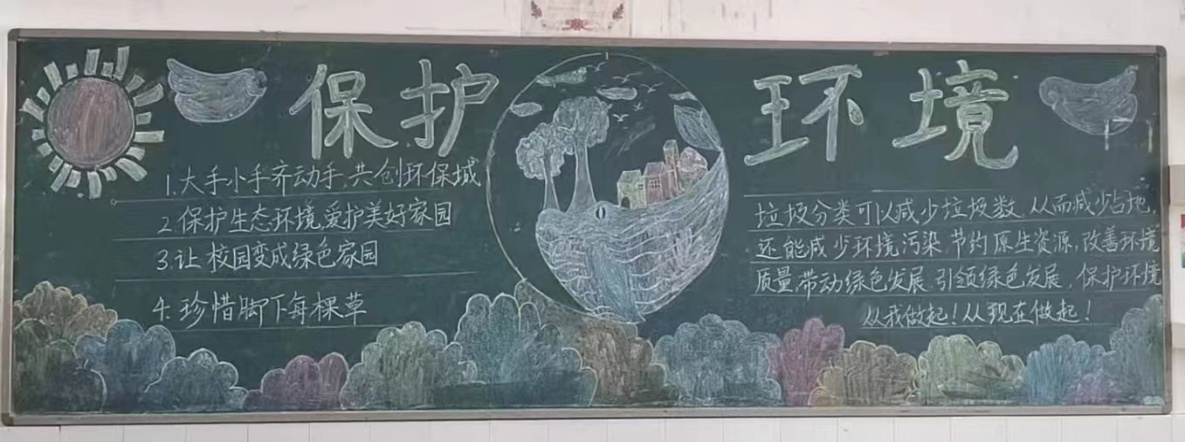 保护环境
1.大手小手齐动手,共创环保城
2.保护生态环境,爱护美好家园
3.让校园变成绿色家园
4.珍惜脚下每棵草
垃圾分类可以减少垃圾数,从而减少占地,
还能减少环境污染,节约原生资源,改善环境
质量,带动绿色发展,引领绿色发展,保护环境
从我做起!从现在做起!